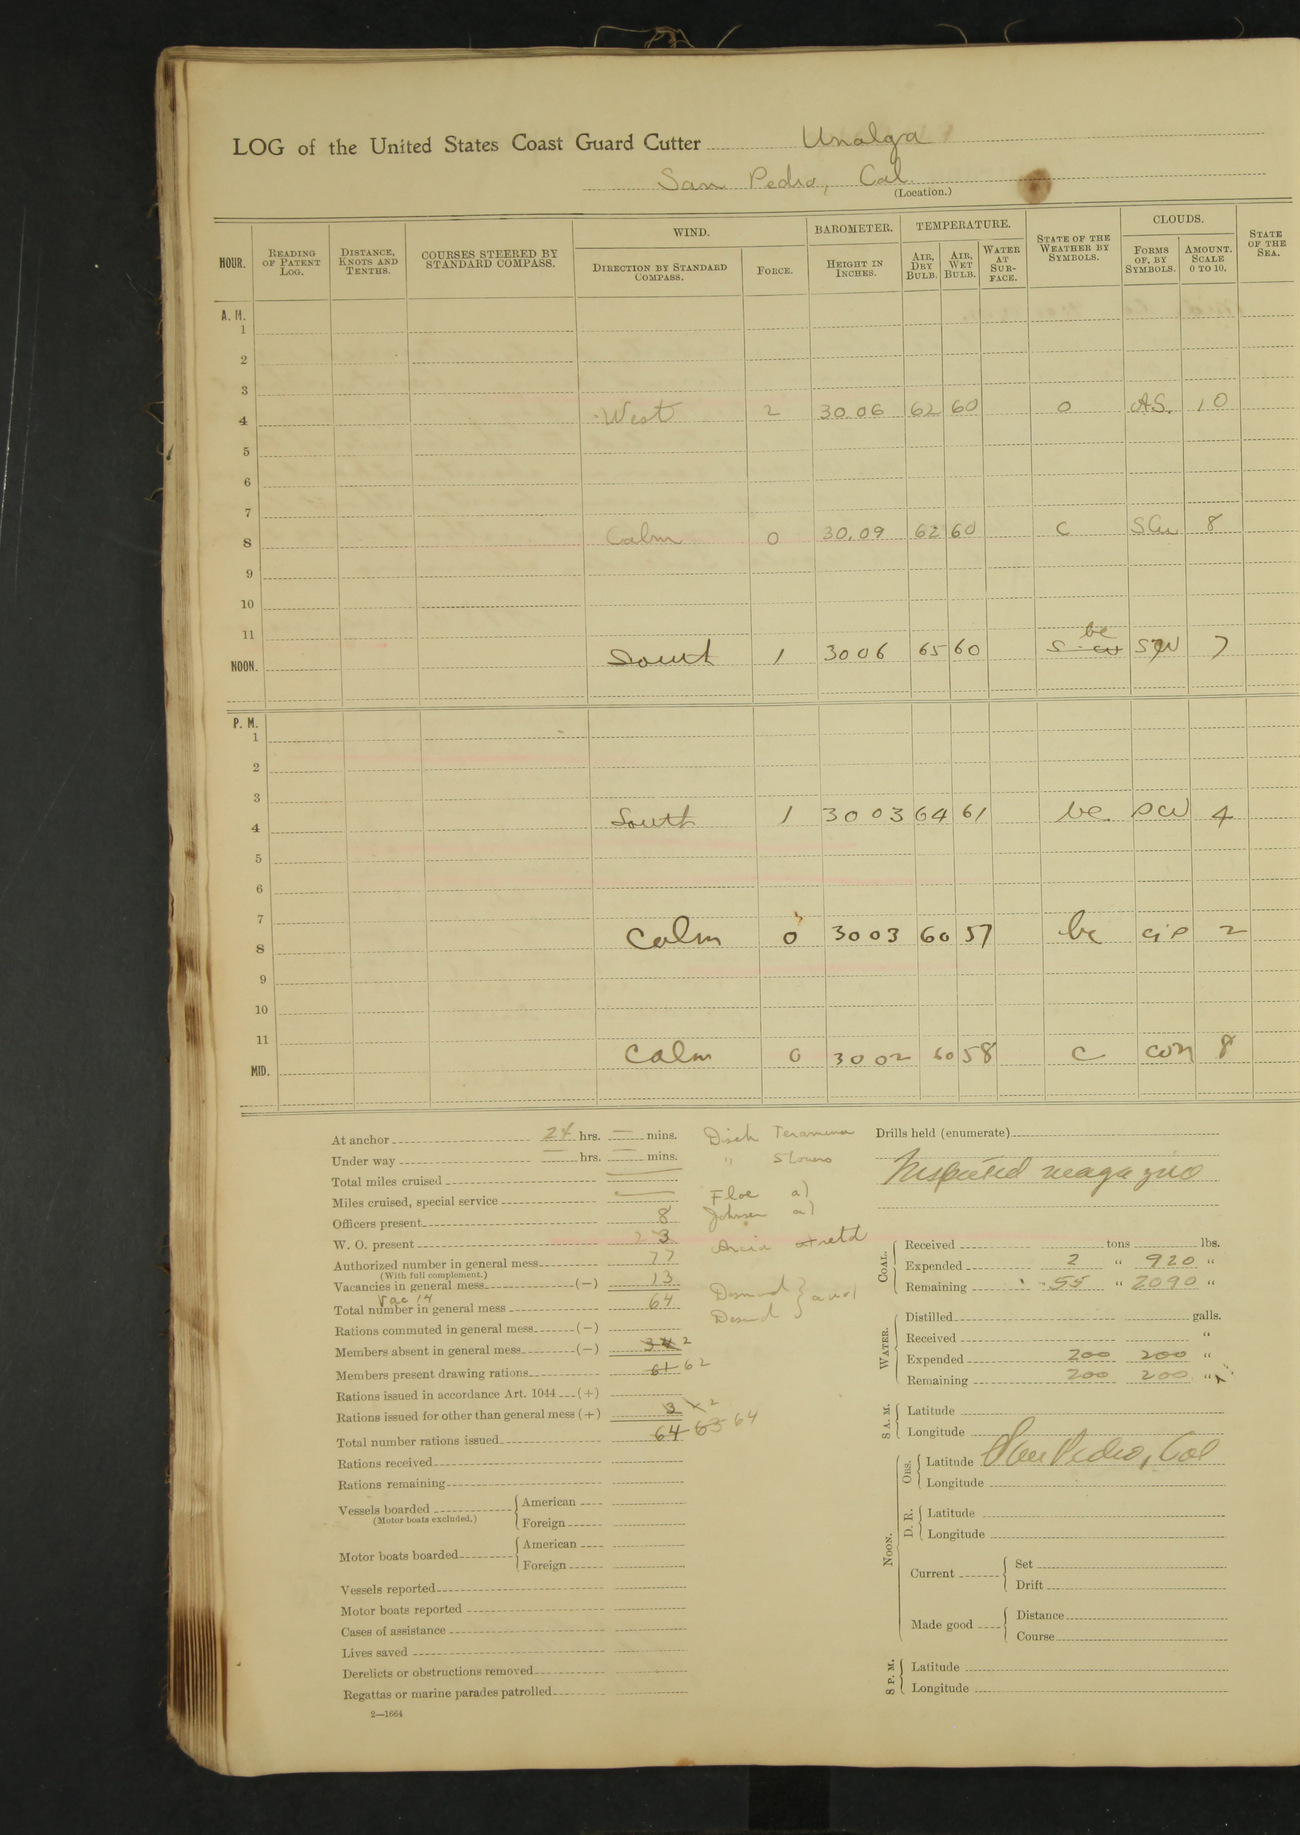 LOG of the United States Coast Guard Cutter Unalga
San Pedro, Cal.
(Location.)
HOUR. READING OF PATENT LOG. DISTANCE, KNOTS AND TENTHS. COURSES STEERED BY STANDARD COMPASS. WIND. DIRECTION BY STANDARD COMPASS. FORCE. BAROMETER. HEIGHT IN INCHES. TEMPERATURE. AIR, DRY BULB. AIR, WET BULB. WATER AT SURFACE. STATE OF THE WEATHER BY SYMBOLS. CLOUDS. FORMS OF, BY SYMBOLS. AMOUNT. SCALE 0 TO 10. STATE OF THE SEA.
A. M.
1
2
3
4 West 2 30 06 62 60 0 AS. 10
5
6
7
8 Calm 0 30.09 62 60 c SCu 8
9
10
11
NOON. South 1 30 06 65 60 bc 7
P. M.
1
2
3
4 South 1 30 03 64 61 bc 4
5
6
7
8 Calm 0 30 03 60 57 bc 2
9
10
11
MID. Calm 0 30 02 60 58 c 8
At anchor 24 hrs. — mins.
Under way — hrs. — mins.
Total miles cruised
Miles cruised, special service
Officers present 8
W. O. present 3
Authorized number in general mess 77
(With full complement.)
Vacancies in general mess (—) 13
Vac 14
Total number in general mess 64
Rations commuted in general mess (—)
Members absent in general mess (—) 2
Members present drawing rations 61 62
Rations issued in accordance Art. 1044 (+)
Rations issued for other than general mess (+) 3 2
Total number rations issued 64 63 64
Rations received
Rations remaining
Vessels boarded American
(Motor boats excluded.) Foreign
Motor boats boarded American
Foreign
Vessels reported
Motor boats reported
Cases of assistance
Lives saved
Derelicts or obstructions removed
Regattas or marine parades patrolled
2—1664
Disch
Floe
Johnson
Drills held (enumerate)
Inspected magazine
COAL.
Received tons lbs.
Expended 2 " 920 "
Remaining 55 " 2090 "
WATER.
Distilled galls.
Received "
Expended 200 200 "
Remaining 200 200 "
8 A. M.
Latitude
Longitude
NOON.
OBS.
Latitude San Pedro, Cal
Longitude
D. R.
Latitude
Longitude
Current Set
Drift
Made good Distance
Course
8 P. M.
Latitude
Longitude